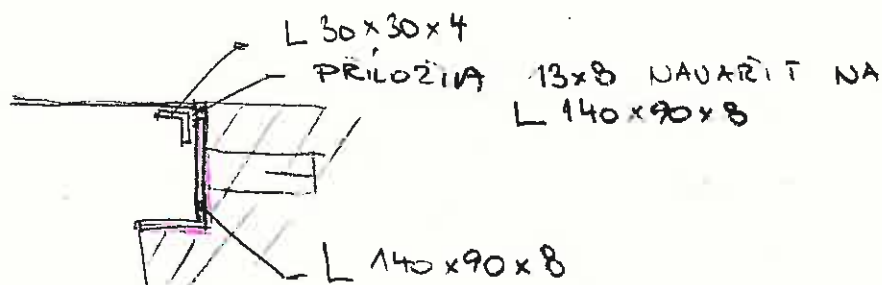 L 30×30×4
PŘÍLOŽKA 13×8 NAVAŘIT NA
L 140×90×8
L 140×90×8